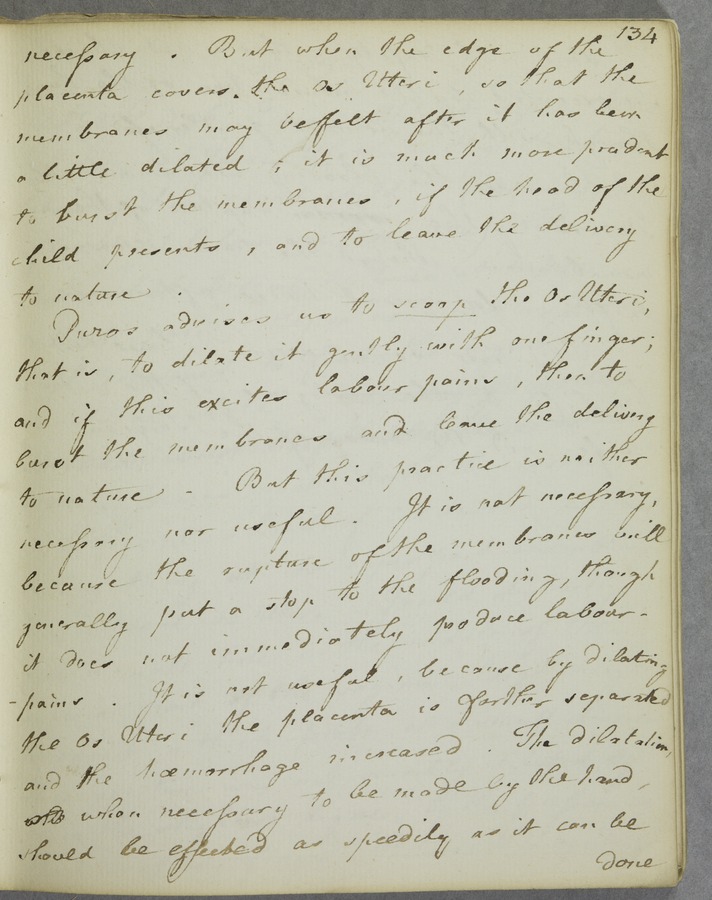 134
necessary . But when the edge of the
placenta covers the Os Uteri , so that the
membranes may be felt after it has been
a little dilated ; it is much more prudent
to burst the membranes , if the head of the
child presents , and to leave the delivery
to nature .
Puzos advises us to scoop the Os Uteri,
that is, to dilate it gently with one finger;
and if this excites labour pains , then to
burst the membranes and leave the delivery
to nature - But this practice is neither
necessary nor useful . It is not necessary,
because the rupture of the membranes will
generally put a stop to the flooding, though
it does not immediately produce labour-
-pains . It is not useful , because by dilating
the Os Uteri the placenta is farther separated
and the hæmorrhage increased . The dilatation,
when necessary to be made by the hand,
should be effected as speedily as it can be
done